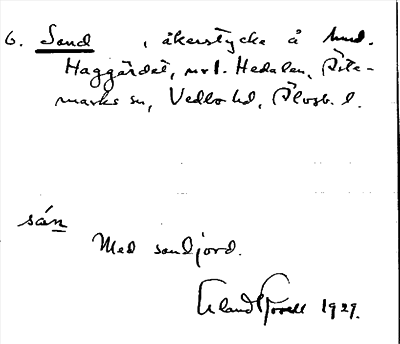 6. Sand, åkerstycke å hmd.
Haggärdet, nr 1. Hedalen, Ärte-
marks sn, Vedbo hd, Älvsb. l.
sán
Med sandjord.
Erland 1929.